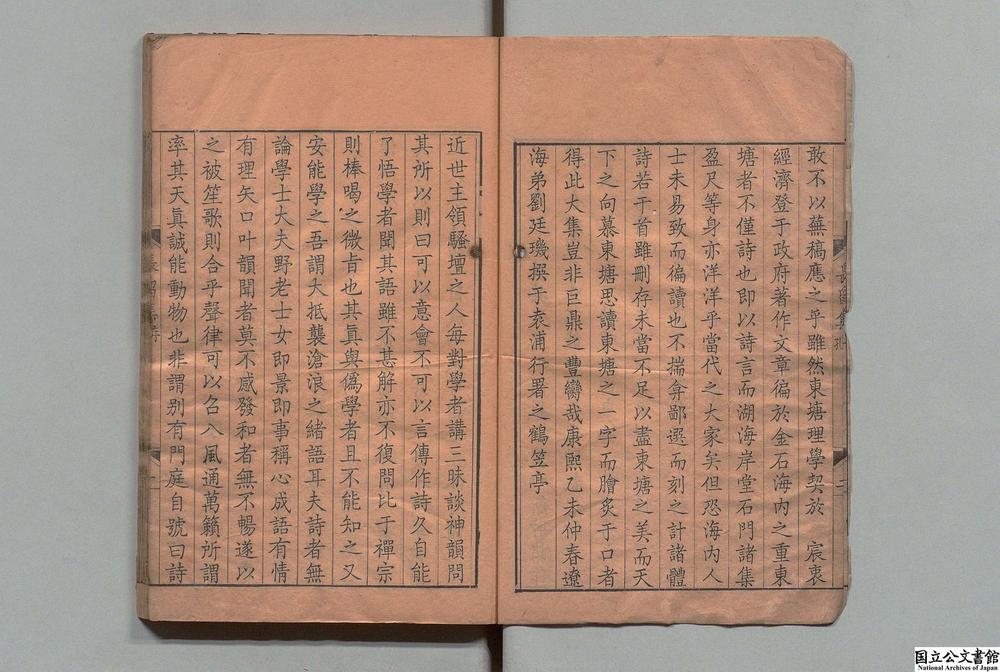 敢不以蕪稿應之乎雖然東塘理學契於　宸衷
經濟登于政府著作文章徧於金石海內之重東
塘者不僅詩也即以詩言而湖海岸堂石門諸集
盈尺等身亦洋洋乎當代之大家矣但恐海內人
士未易致而徧讀也不揣弇鄙選而刻之計諸體
詩若干首雖刪存未當不足以盡東塘之美而天
下之向慕東塘思讀東塘之一字而膾炙于口者
得此大集豈非巨鼎之豐臠哉康熙乙未仲春遼
海弟劉廷璣撰于袁浦行署之鶴笠亭
近世主領騷壇之人每對學者講三昧談神韻問
其所以則曰可以意會不可以言傳作詩久自能
了悟學者聞其語雖不甚解亦不復問比于禪宗
則棒喝之微旨也其真與僞學者且不能知之又
安能學之吾謂大抵襲滄浪之緒語耳夫詩者無
論學士大夫野老士女即景即事稱心成語有情
有理矢口叶韻聞者莫不感發和者無不暢遂以
之被笙歌則合乎聲律可以召八風通萬籟所謂
率其天眞誠能動物也非謂别有門庭自號曰詩
国立公文書館
National Archives of Japan